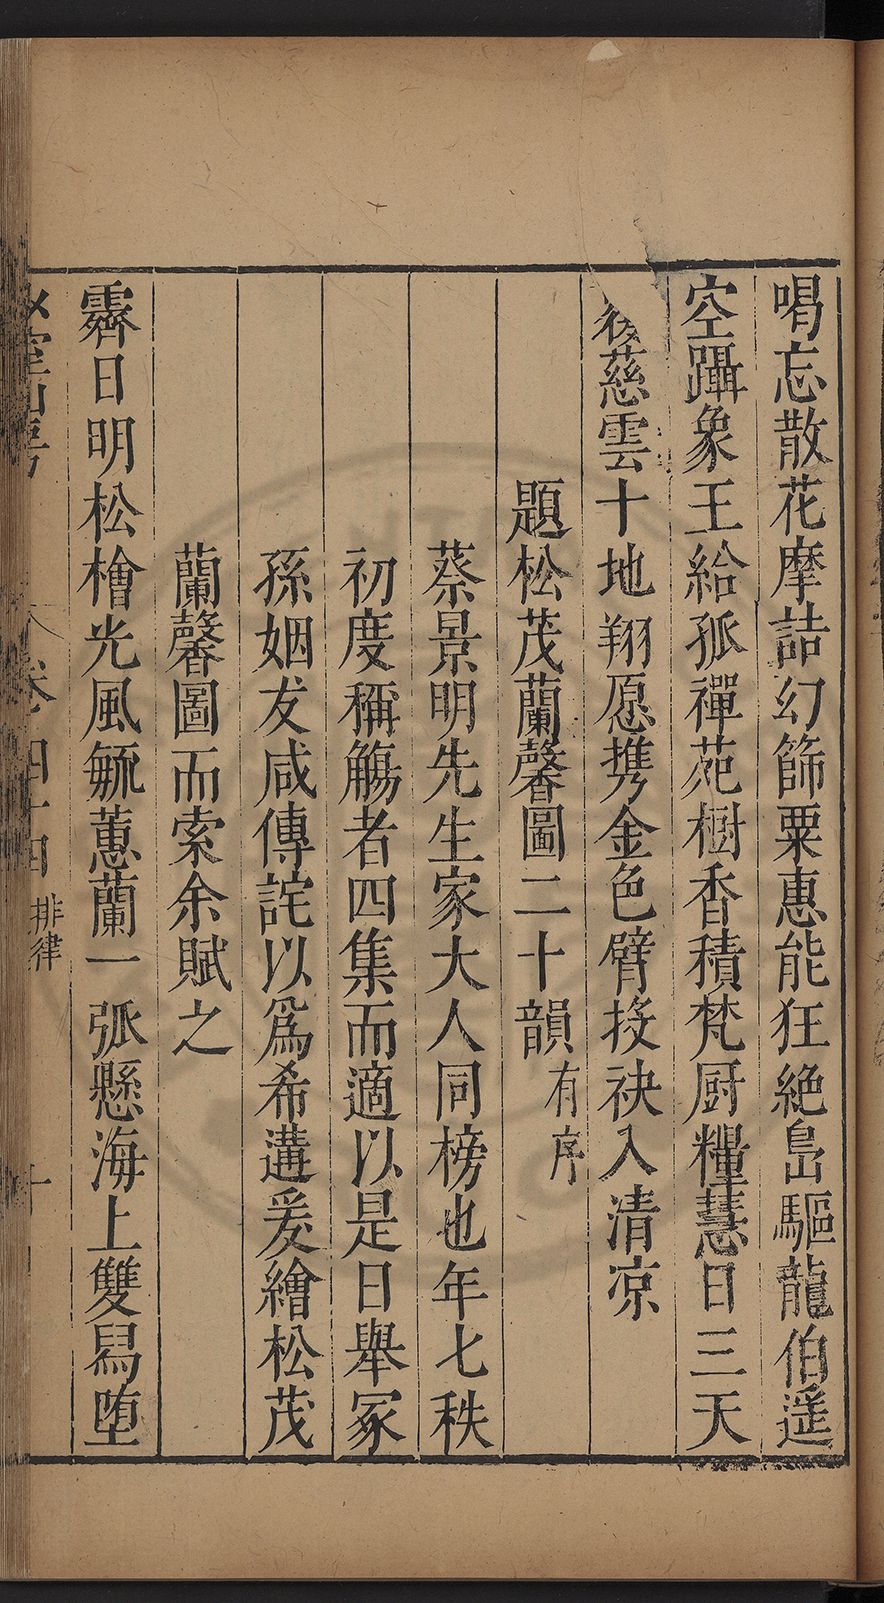 喝忘散花摩詰幻篩粟惠能狂絶島驅龍伯遥
空躡象王給孤禪苑樹香積梵厨糧慧日三天
慈雲十地翔愿携金色臂接袂入清凉
題松茂蘭馨圖二十韻有序
蔡景明先生家大人同榜也年七秩
初度稱觴者四集而適以是日舉冢
孫姻友咸傳詫以爲希遘爰繪松茂
蘭馨圖而索余賦之
霽日明松檜光風毓蕙蘭一弧懸海上雙舄堕
卷四十四 排律 十